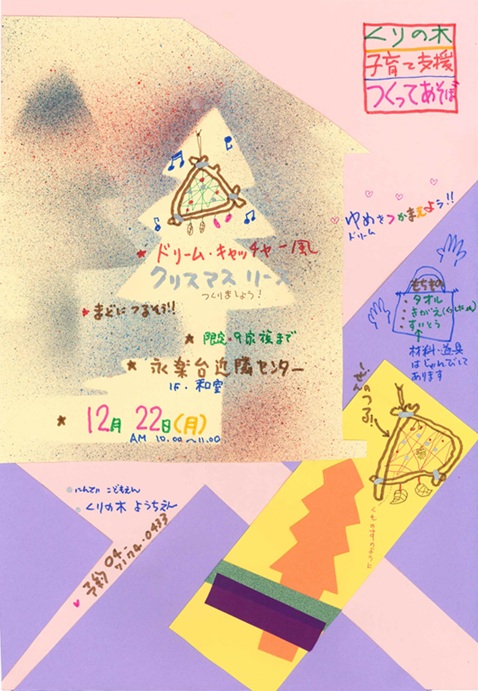 くりの木
子育て支援
つくってあそぼ
ゆめをつかまえよう!!
ドリーム
★ドリーム・キャッチャー風
クリスマスリース
つくりましょう!
♥まどにつるそう!!
★限定・9家族まで
★永楽台近隣センター
1F・和室
★12月22日(月)
AM 10.00~11.00
もちもの
・タオル
・きがえ
・すいとう
材料・道具
はじゅんびして
あります
ぜんのつる!!
くものすのように
・にんてい こどもえん
・くりの木 ようちえん
♥予約 04・7174・0433